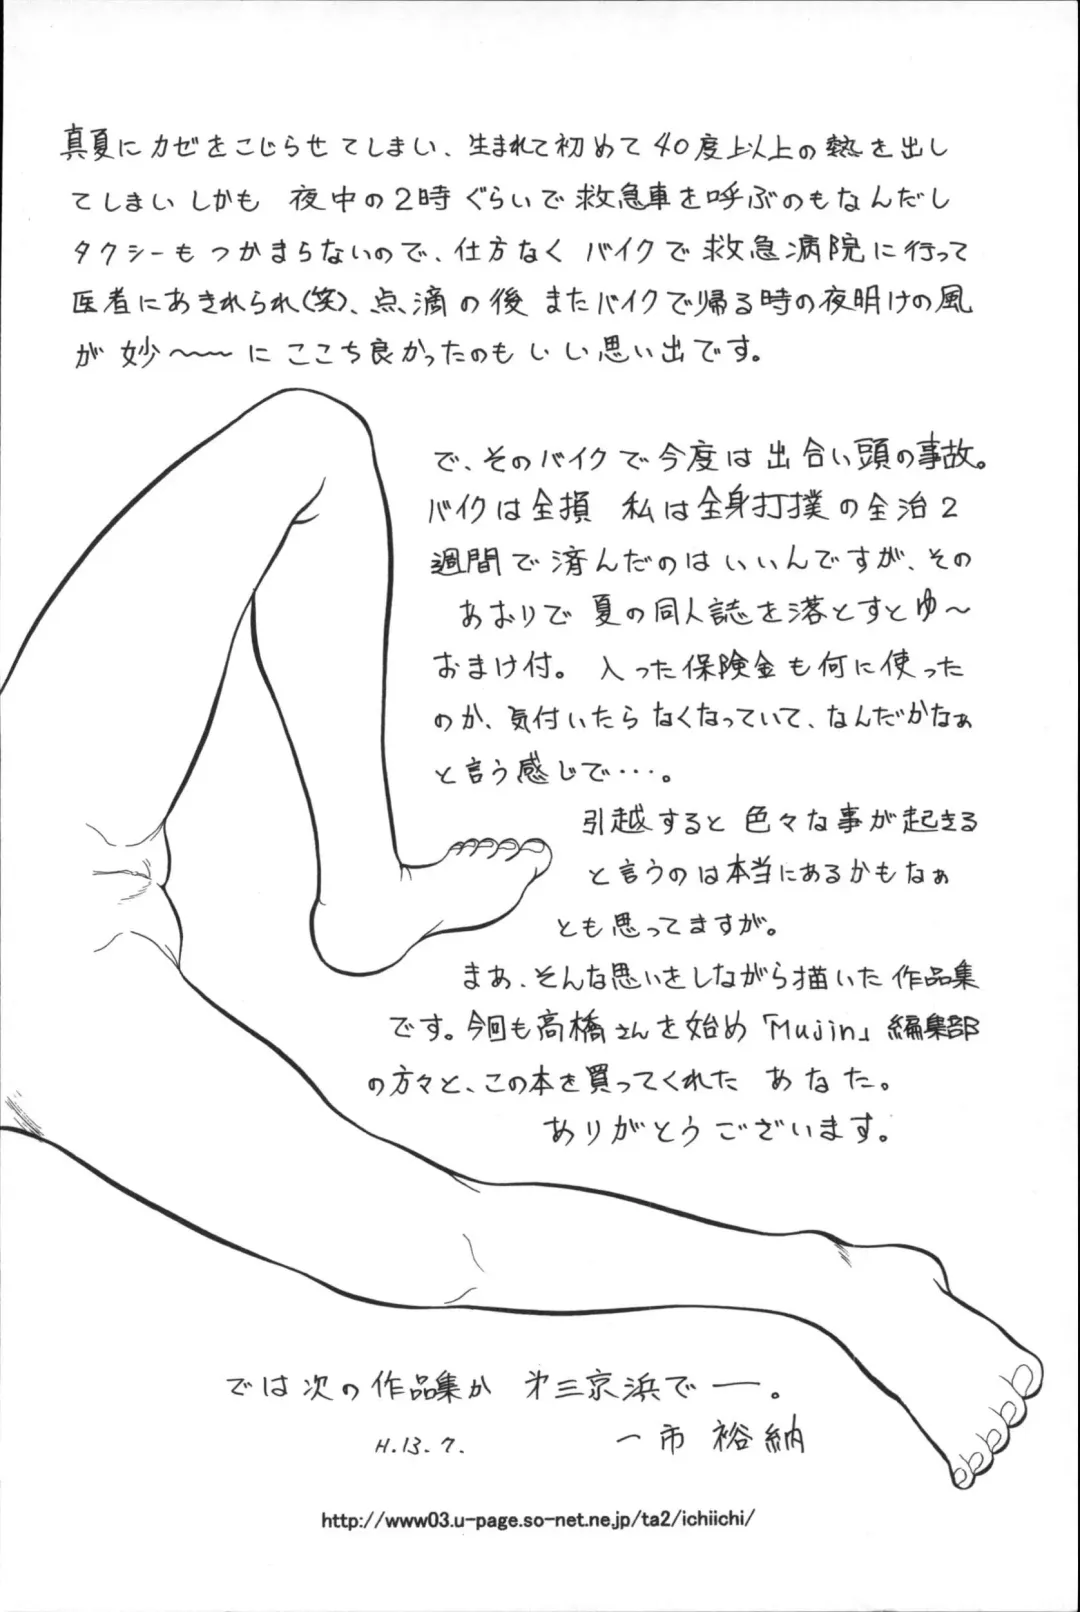 真夏にカゼをこじらせてしまい、生まれて初めて40度以上の熱を出し
てしまいしかも 夜中の2時ぐらいで救急車を呼ぶのもなんだし
タクシーもつかまらないので、仕方なく バイクで救急病院に行って
医者にあきれられ(笑)、点滴の後またバイクで帰る時の夜明けの風
が妙〜〜にここち良かったのもいい思い出です。
で、そのバイクで今度は出合い頭の事故。
バイクは全損 私は全身打撲の全治2
週間で済んだのはいいんですが、その
あおりで夏の同人誌を落とすとゆ〜
おまけ付。入った保険金も何に使った
のか、気付いたらなくなっていて、なんだかなぁ
と言う感じで・・・。
引越すると色々な事が起きる
と言うのは本当にあるかもなぁ
とも思ってますが。
まあ、そんな思いをしながら描いた作品集
です。今回も高橋さんを始め「Mujin」編集部
の方々と、この本を買ってくれた あなた。
ありがとうございます。
では次の作品集か 第三京浜でー。
H.13.7. 一市 裕納
http://www03.u-page.so-net.ne.jp/ta2/ichiichi/